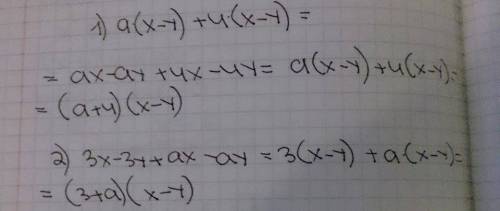 1) a(x-y)+4(x-y)=
= ax-ay+4x-4y= a(x-y)+4(x-y)=
= (a+4)(x-y)
2) 3x-3y+ax-ay = 3(x-y) + a(x-y)=
= (3+a)(x-y)